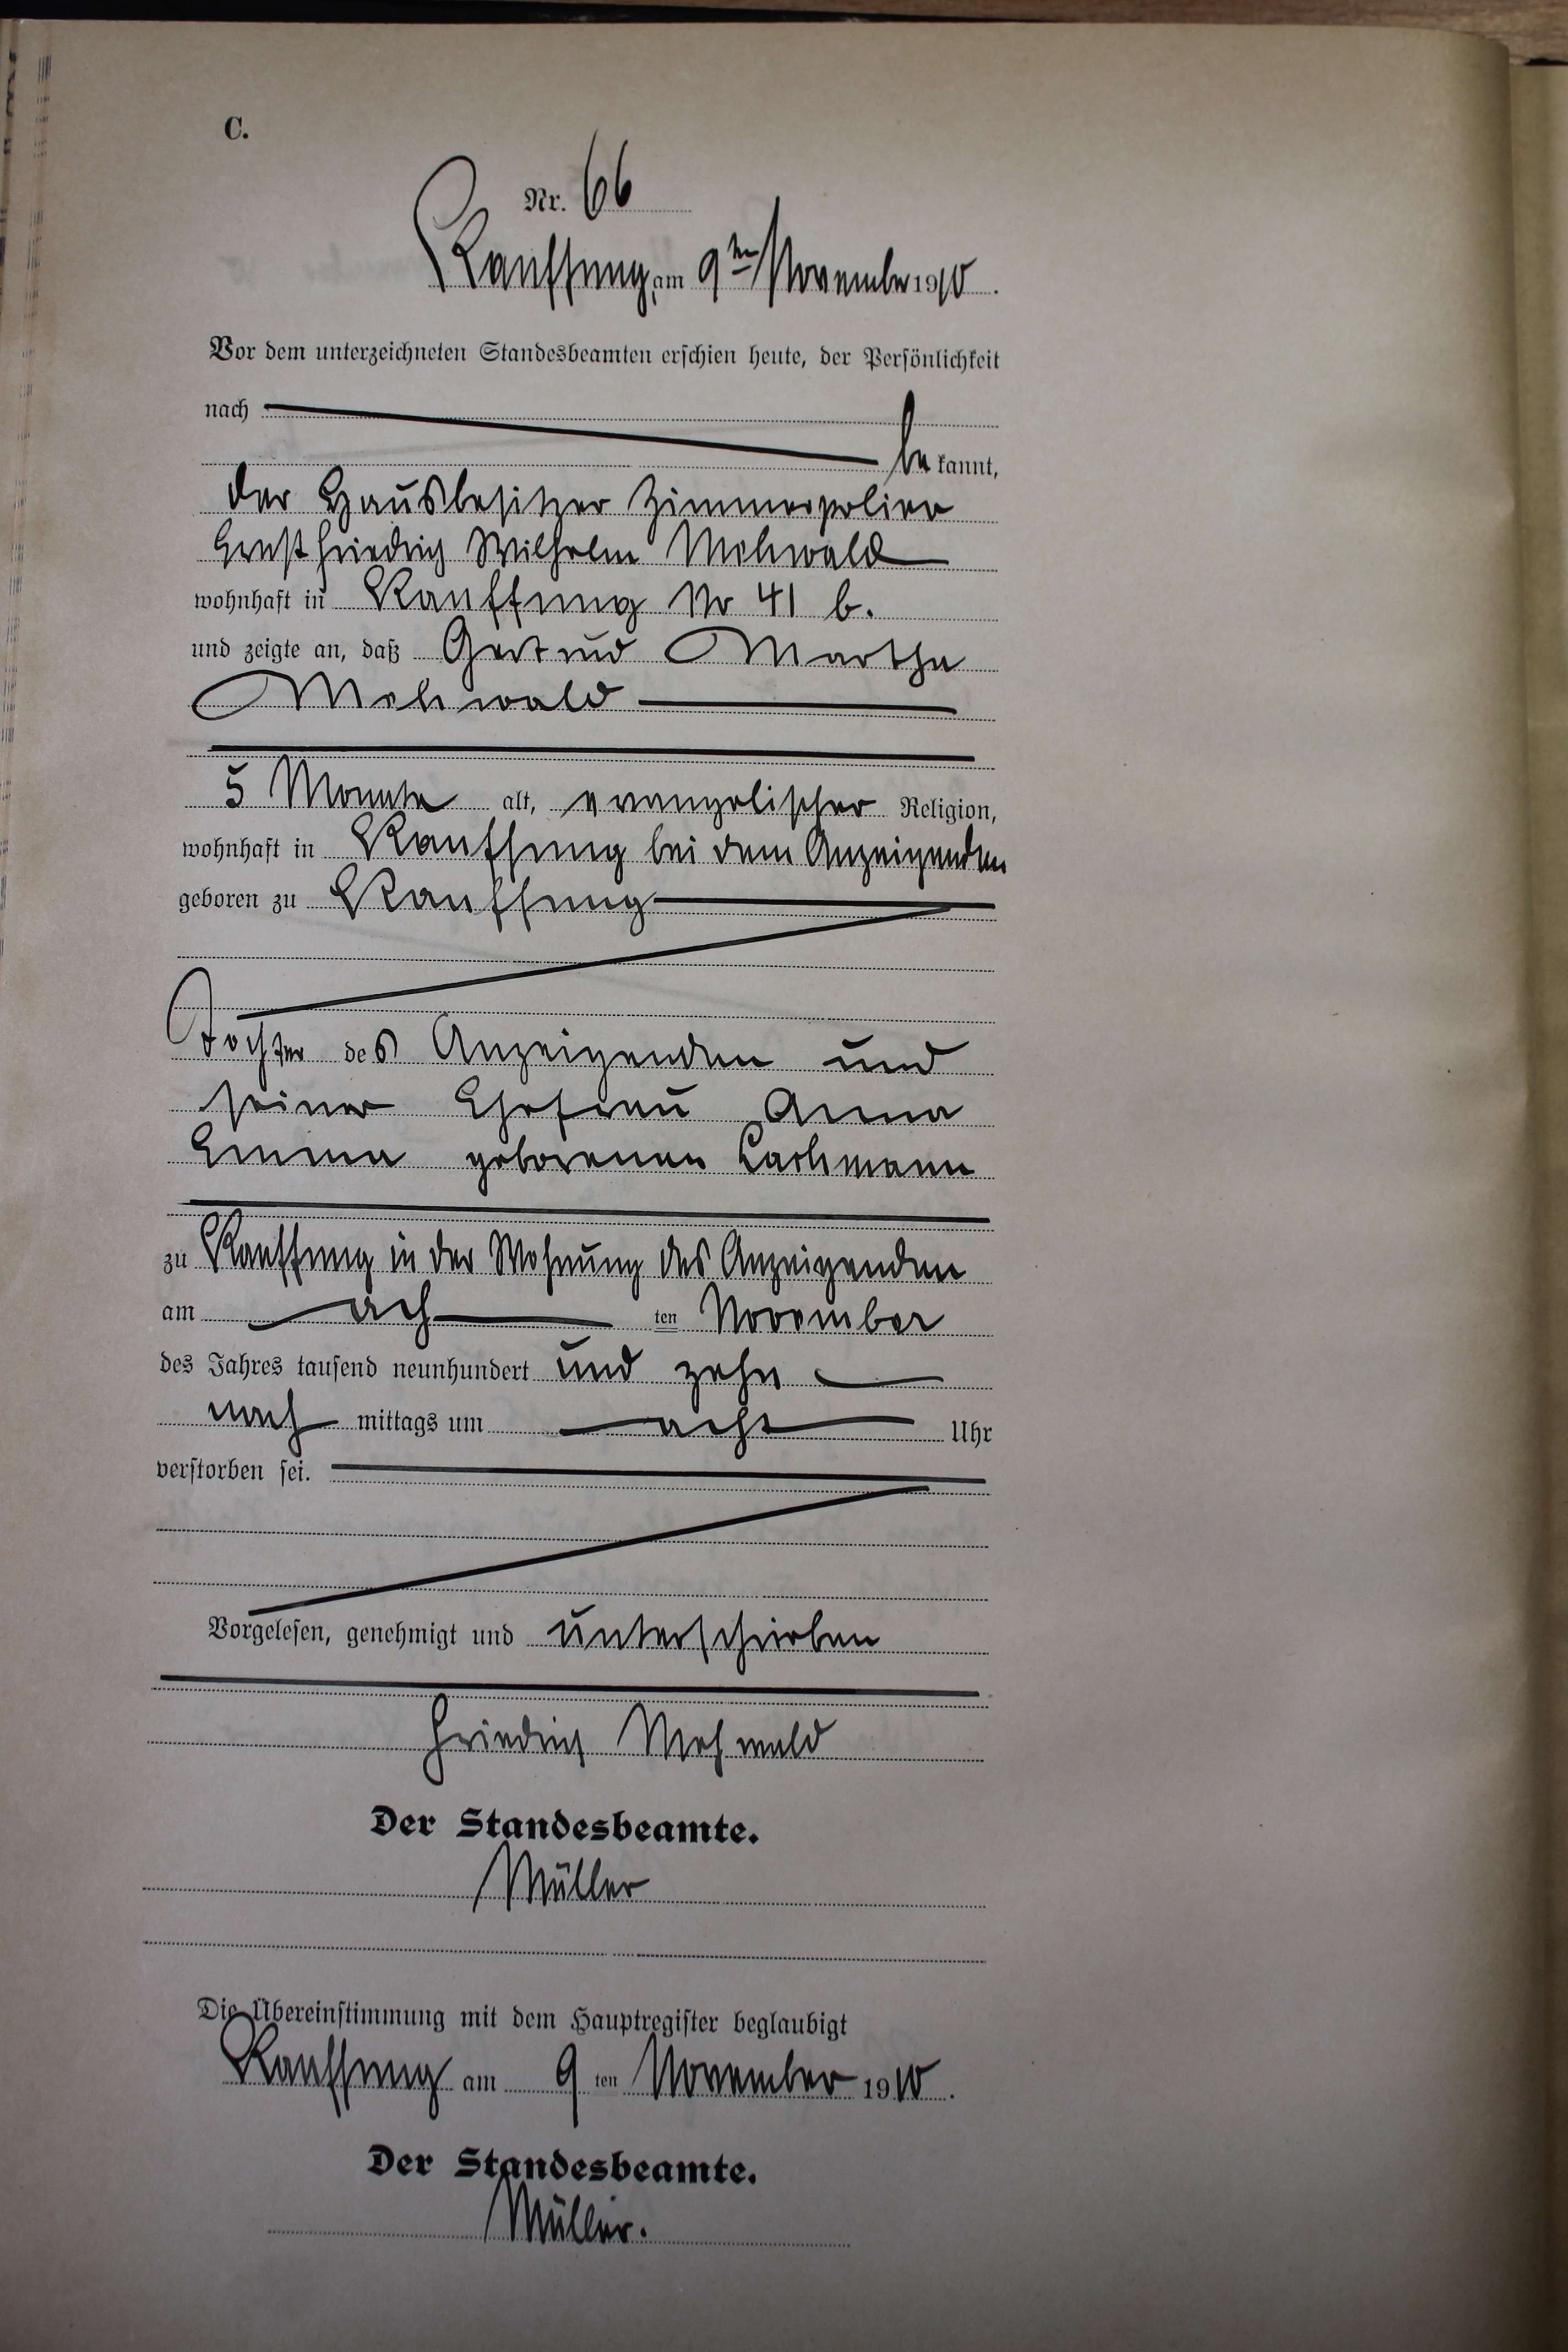 C.
Nr. 66
Kauffung, am 9ten November 1910.
Vor dem unterzeichneten Standesbeamten erschien heute, der Persönlichkeit
nach
bekannt,
der Hausbesitzer Zimmerpolier
Ernst Friedrich Wilhelm Mehwald
wohnhaft in Kauffung No 41 b.
und zeigte an, daß Gertrud Martha
Mehwald
5 Monate alt, evangelischer Religion,
wohnhaft in Kauffung bei dem Anzeigenden
geboren zu Kauffung
Tochter des Anzeigenden und
seiner Ehefrau Anna
Emma geborenen Lachmann
zu Kauffung in der Wohnung des Anzeigenden
am ach ten November
des Jahres tausend neunhundert und zehn
nach mittags um acht Uhr
verstorben sei.
Vorgelesen, genehmigt und unterschrieben
Friedrich Mehwald
Der Standesbeamte.
Müller
Die Übereinstimmung mit dem Hauptregister beglaubigt
Kauffung am 9 ten November 1910.
Der Standesbeamte.
Müller.